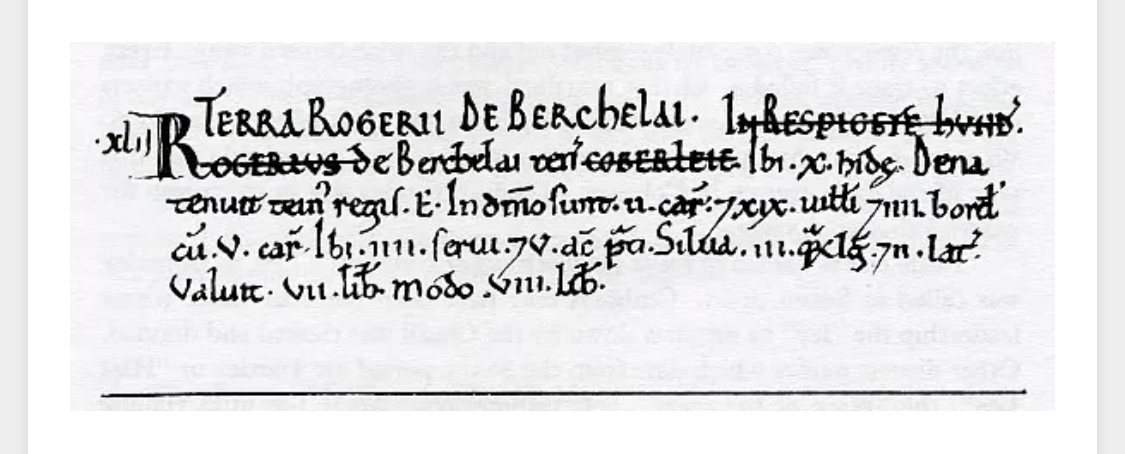 TERRA ROGERII DE BERCHELAI. IN RESPIGETE HVND'.
·xlii ROGERIVS de Berchelai ten' COBERLEIE. Ibi .x. hidę. Dena
tenuit tein' regis. E. In dn̄io sunt .ii. car̄. ⁊ xix. uitti ⁊ iiii. bord'
cū .v. car̄. Ibi .iiii. serui. ⁊ v. ac̄ p̄ti. Silua .iii. q̄ꝝ lḡ. ⁊ ii. lat'.
Valuit .vii. lib̄. modo .viii. lib̄.